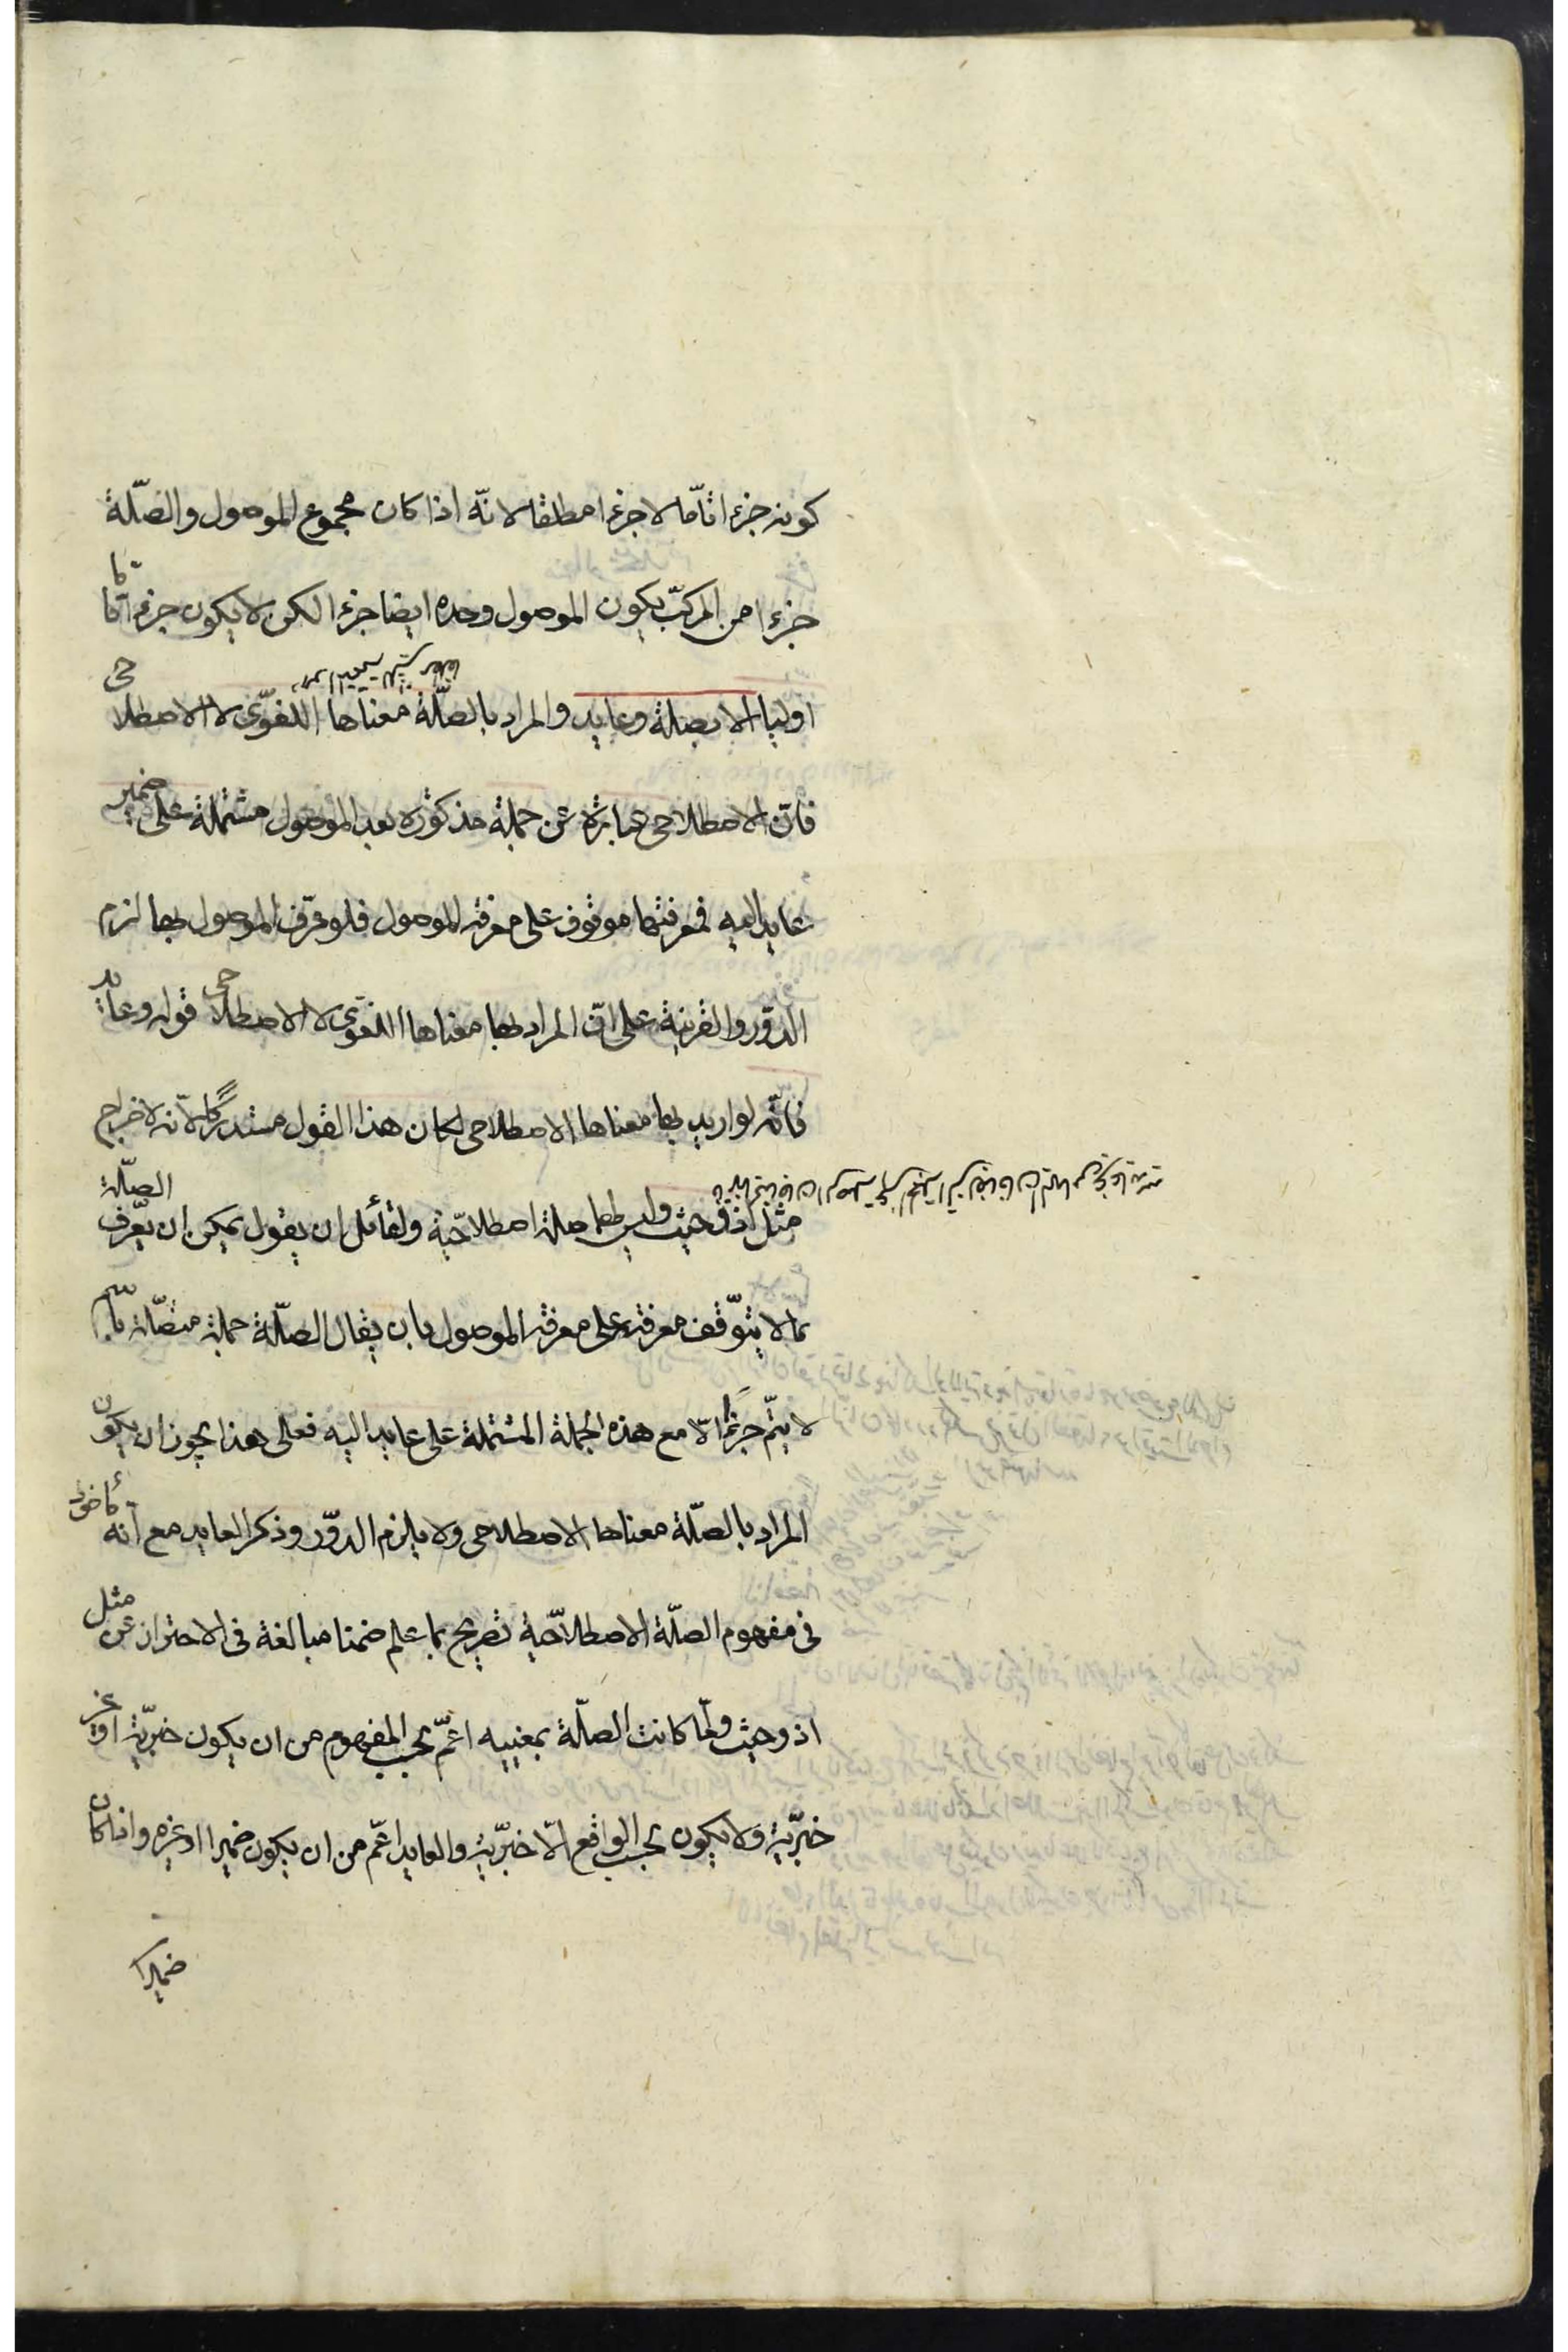 كونه جزءا تامّا لا جزءا مطلقا لانّه اذا كان مجموع الموصول والصّلة
جزءا من المركّب يكون الموصول وحده ايضا جزءا لكن لا يكون جزءا تاما
اوليا الا بصلة وعايد والمراد بالصّلة معناها اللغوّى لا الاصطلاحى
فانّ الاصطلاحى عبارة عن جملة مذكورة بعد الموصول مشتملة على ضمير
عايد اليه فمعرفتها موقوف على معرفة الموصول فلو عرّف الموصول بها لزم
الدوّر والقرينة على انّ المراد بها معناها اللغوى لا الاصطلاحى قوله وعايد
فانّه لو اريد بها معناها الاصطلاحى لكان هذا القول مستدركا لانّه لاخراج
مثل اذ وحيث وليس لهما صلة اصطلاحّية ولقائل ان يقول يمكن ان يعّرف الصّلة
بما لا يتوّقف معرفته على معرفة الموصول بان يقال الصّلة جملة متصّلة باسم
لا يتمّ جزءا الّا مع هذه الجملة المشتملة على عايد اليه فعلى هذا يجوز ان يكون
المراد بالصّلة معناها الاصطلاحى ولا يلزم الدوّر وذكر العايد مع انه مأخوذ
فى مفهوم الصلّة الاصطلاحّية تصريح بما علم ضمنا مبالغة فى الاحتراز عن مثل
اذ وحيث ولمّا كانت الصلّة بمعنييه اعمّ بحسب المفهوم من ان يكون خبرّية او غير
خبرّية ولا يكون بحسب الواقع الّا خبرّية والعايد اعّم من ان يكون ضميرا او غيره واذا كان
ضميرا